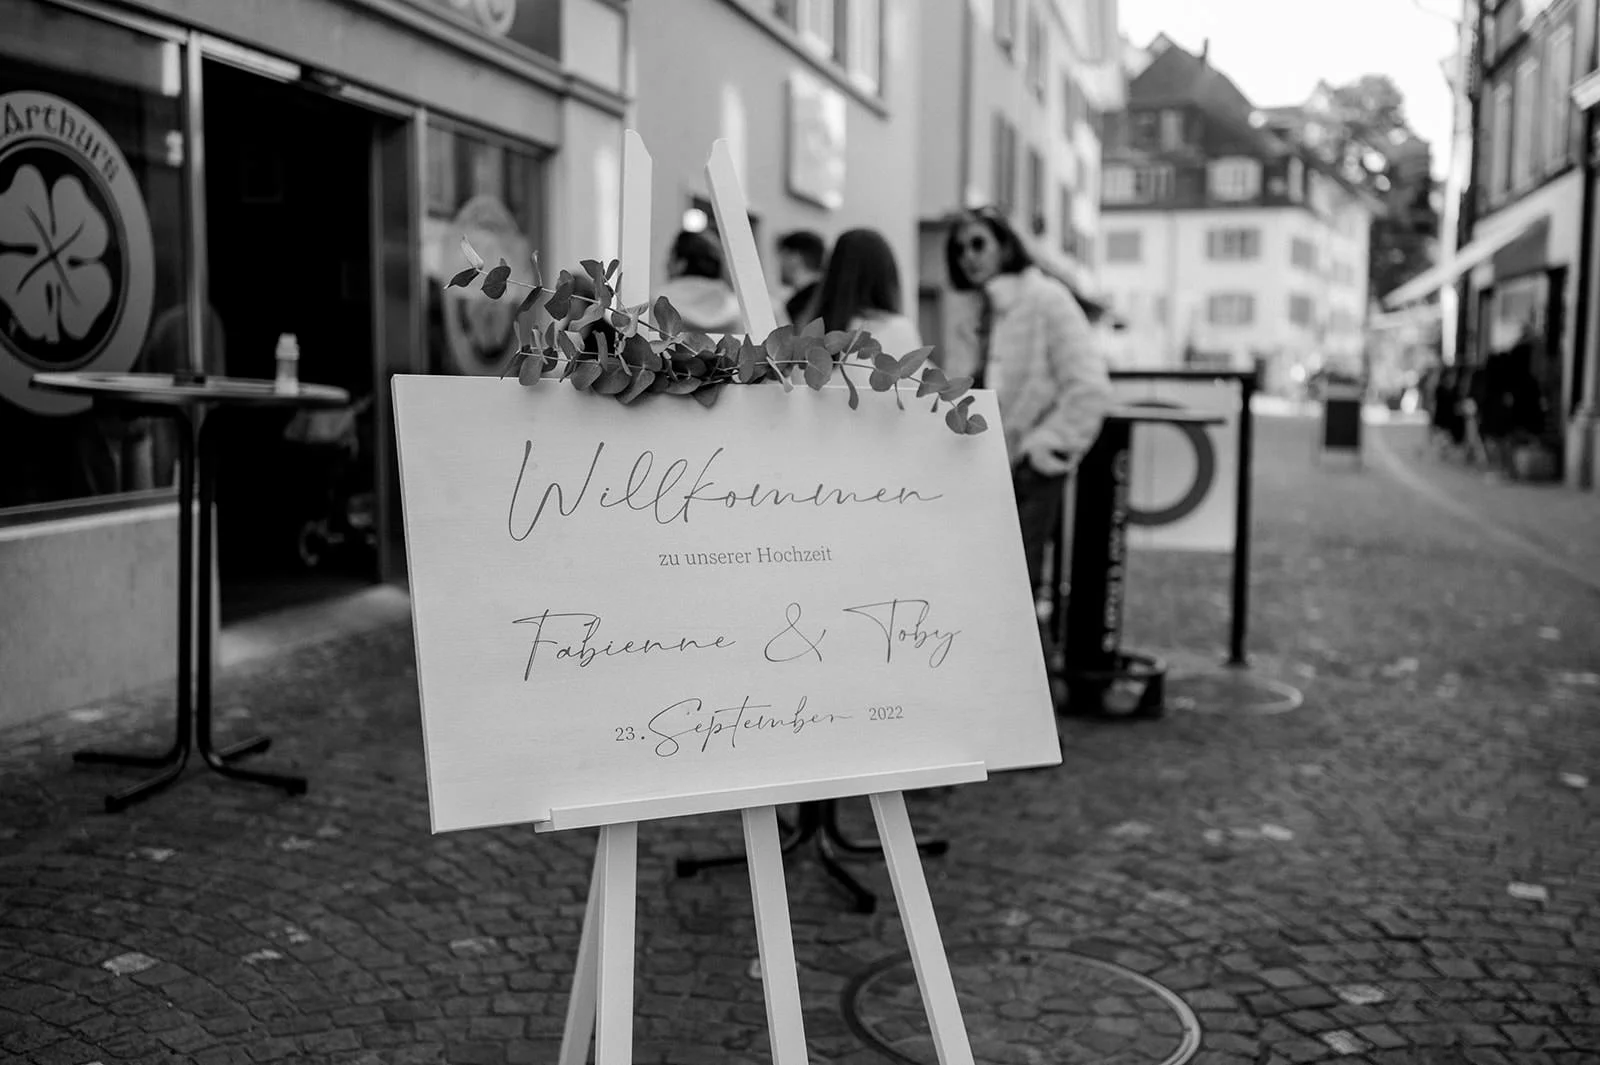 Arthurs
Willkommen
zu unserer Hochzeit
Fabienne & Toby
23. September 2022